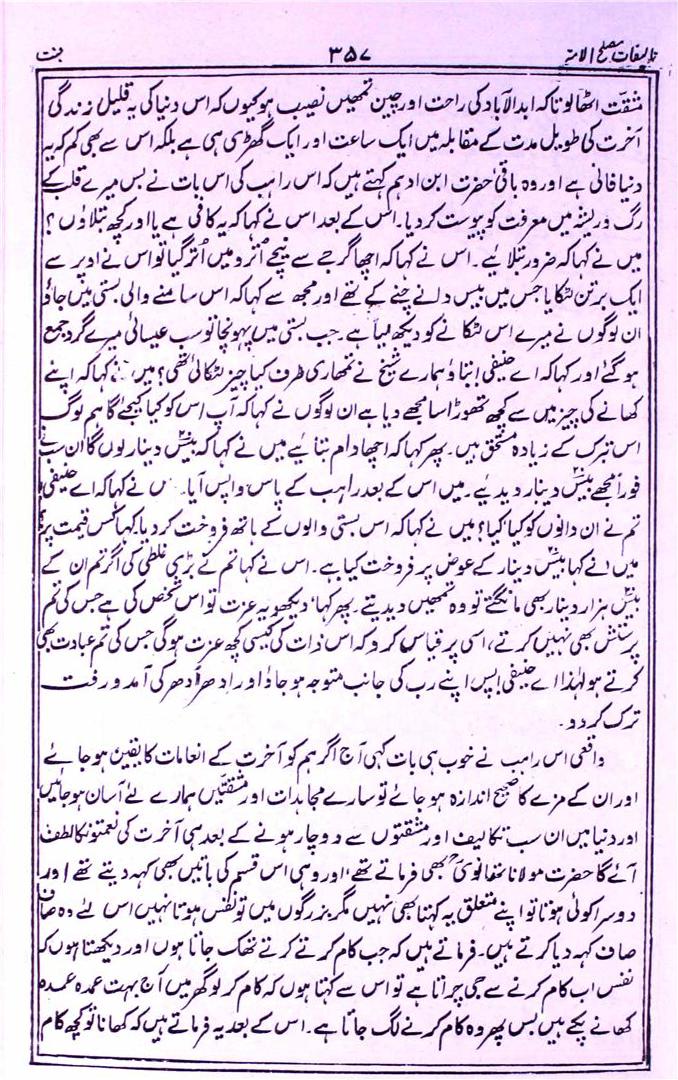 تالیفات مصلح الامۃ ۳۵۷ جنت
مشقت اٹھا لو تاکہ ابد الآباد کی راحت اور چین تمھیں نصیب ہو کیوں کہ اس دنیا کی یہ قلیل زندگی
آخرت کی طویل مدت کے مقابلہ میں ایک ساعت اور ایک گھڑی ہی ہے بلکہ اس سے بھی کم کہ یہ
دنیا فانی ہے اور وہ باقی حضرت ابن ادہم کہتے ہیں کہ اس راہب کی اس بات نے بس میرے قلب کے
رگ و ریشہ میں معرفت کو پیوست کر دیا۔ اس کے بعد اس نے کہا کہ یہ کافی ہے یا اور کچھ بتلاؤں؟
میں نے کہا کہ ضرور بتلائیے۔ اس نے کہا کہ اچھا گرجے سے نیچے اُترو میں اُتر گیا تو اس نے اوپر سے
ایک برتن لٹکایا جس میں بیس دانے چنے کے تھے اور مجھ سے کہا کہ اس سامنے والی بستی میں جاؤ
ان لوگوں نے میرے اس لٹکانے کو دیکھ لیا ہے۔ جب بستی میں پہونچا تو سب عیسائی میرے گرد جمع
ہو گئے اور کہا کہ اے حنیفی! بتاؤ ہمارے شیخ نے تمھاری طرف کیا چیز لٹکائی تھی؟ میں نے کہا کہ اپنے
کھانے کی چیز میں سے کچھ تھوڑا سا مجھے دیا ہے ان لوگوں نے کہا کہ آپ اس کو کیا کیجئے گا ہم لوگ
اس تبرک کے زیادہ مستحق ہیں۔ پھر کہا کہ اچھا دام بتائیے میں نے کہا کہ بیس ۲۰ دینار لوں گا ان سب نے
فوراً مجھے بیس ۲۰ دینار دیدیے۔ میں اس کے بعد راہب کے پاس واپس آیا۔ س نے کہا کہ اے حنیفی!
تم نے ان دانوں کو کیا کیا؟ میں نے کہا کہ اس بستی والوں کے ہاتھ فروخت کر دیا۔ کہا کس قیمت پر؟
میں نے کہا بیس ۲۰ دینار کے عوض پر فروخت کیا ہے۔ اس نے کہا تم نے بڑی غلطی کی اگر تم ان کے
بیس ۲۰ ہزار دینار بھی مانگتے تو وہ تمھیں دیدیتے۔ پھر کہا، دیکھو یہ عزت تو اس شخص کی ہے جس کی تم
پرستش بھی نہیں کرتے، اسی پر قیاس کرو کہ اس ذات کی کیسی کچھ عزت ہوگی جس کی تم عبادت بھی
کرتے ہو لہٰذا اے حنیفی! بس اپنے رب کی جانب متوجہ ہو جاؤ اور ادھر اُدھر کی آمد و رفت
ترک کر دو۔
واقعی اس راہب نے خوب ہی بات کہی آج اگر ہم کو آخرت کے انعامات کا یقین ہو جائے
اور ان کے مزے کا صحیح اندازہ ہو جائے تو سارے مجاہدات اور مشقتیں ہمارے لئے آسان ہو جائیں
اور دنیا میں ان سب تکالیف اور مشقتوں سے دوچار ہونے کے بعد ہی آخرت کی نعمتوں کا لطف
آئے گا حضرت مولانا تھانویؒ بھی فرماتے تھے، اور وہی اس قسم کی باتیں بھی کہہ دیتے تھے اور
دوسرا کوئی ہوتا تو اپنے متعلق یہ کہتا بھی نہیں مگر بزرگوں میں تو نفس ہوتا نہیں اس لئے وہ صاف
صاف کہہ دیا کرتے ہیں۔ فرماتے ہیں کہ جب کام کرتے کرتے تھک جاتا ہوں اور دیکھتا ہوں کہ
نفس اب کام کرنے سے جی چراتا ہے تو اس سے کہتا ہوں کہ کام کر لو گھر میں آج بہت عمدہ عمدہ
کھانے پکے ہیں بس پھر وہ کام کرنے لگ جاتا ہے۔ اس کے بعد یہ فرماتے ہیں کہ کھانا تو کچھ کام